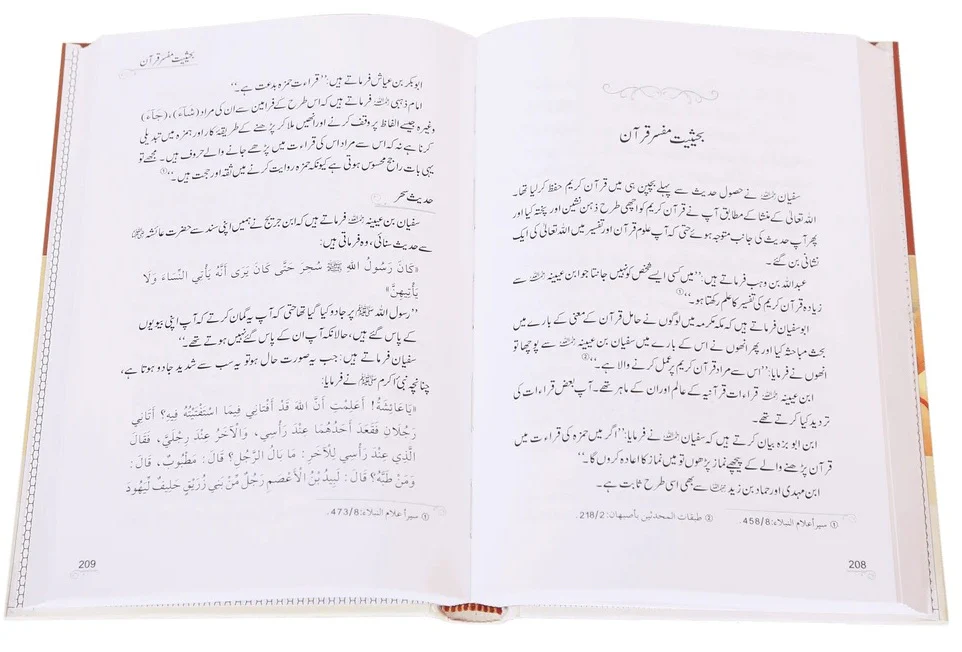 بحیثیت مفسر قرآن
سفیان رحمہ اللہ نے حصول حدیث سے پہلے بچپن ہی میں قرآن کریم حفظ کر لیا تھا۔
اللہ تعالیٰ کے منشا کے مطابق آپ نے قرآن کریم کو اچھی طرح ذہن نشین اور پختہ کیا اور
پھر آپ حدیث کی جانب متوجہ ہوئے حتی کہ آپ علوم قرآن اور تفسیر میں اللہ تعالیٰ کی ایک
نشانی بن گئے۔
عبداللہ بن وہب فرماتے ہیں: ’’میں کسی ایسے شخص کو نہیں جانتا جو ابن عیینہ رحمہ اللہ سے
زیادہ قرآن کریم کی تفسیر کا علم رکھتا ہو۔‘‘①
ابو سفیان فرماتے ہیں کہ مکہ مکرمہ میں لوگوں نے حامل قرآن کے معنی کے بارے میں
بحث مباحثہ کیا اور پھر انھوں نے اس کے بارے میں سفیان بن عیینہ رحمہ اللہ سے پوچھا تو
انھوں نے فرمایا: ’’اس سے مراد قرآن کریم پر عمل کرنے والا ہے۔‘‘②
ابن عیینہ رحمہ اللہ قراءات قرآنیہ کے عالم اور ان کے ماہر تھے۔ آپ بعض قراءات کی
تردید کیا کرتے تھے۔
ابن ابو بزہ بیان کرتے ہیں کہ سفیان رحمہ اللہ نے فرمایا: ’’اگر میں حمزہ کی قراءت میں
قرآن پڑھنے والے کے پیچھے نماز پڑھوں تو میں نماز کا اعادہ کروں گا۔‘‘
ابن مہدی اور حماد بن زید رحمہم اللہ سے بھی اسی طرح ثابت ہے۔
① سير أعلام النبلاء: 458/8. ② طبقات المحدثين بأصبهان: 218/2.
208
بحیثیت مفسر قرآن
ابوبکر بن عیاش فرماتے ہیں: ’’قراءت حمزہ بدعت ہے۔‘‘
امام ذہبی رحمہ اللہ فرماتے ہیں کہ اس طرح کے فرامین سے ان کی مراد (شَاءَ)، (جَاءَ)
وغیرہ جیسے الفاظ پر وقف کرنے اور انھیں ملا کر پڑھنے کے طریقۂ کار اور ہمزہ میں تبدیلی
کرنا ہے نہ کہ اس سے مراد اس کی قراءت میں پڑھے جانے والے حروف ہیں۔ مجھے تو
یہی بات راجح محسوس ہوتی ہے کیونکہ حمزہ روایت کرنے میں ثقہ اور حجت ہیں۔‘‘①
حدیث سحر
سفیان بن عیینہ رحمہ اللہ فرماتے ہیں کہ ابن جریج نے ہمیں اپنی سند سے حضرت عائشہ رضی اللہ عنہا
سے حدیث سنائی، وہ فرماتی ہیں:
«كَانَ رَسُولُ اللهِ ﷺ سُحِرَ حَتَّى كَانَ يَرَى أَنَّهُ يَأْتِي النِّسَاءَ وَلَا
يَأْتِيهِنَّ»
’’رسول اللہ ﷺ پر جادو کیا گیا تھا حتی کہ آپ یہ گمان کرتے کہ آپ اپنی بیویوں
کے پاس گئے ہیں، حالانکہ آپ ان کے پاس گئے نہیں ہوتے تھے۔‘‘
سفیان فرماتے ہیں: جب یہ صورت حال ہو تو یہ سب سے شدید جادو ہوتا ہے،
چنانچہ نبی اکرم ﷺ نے فرمایا:
«يَا عَائِشَةُ! أَعَلِمْتِ أَنَّ اللهَ قَدْ أَفْتَانِي فِيمَا اسْتَفْتَيْتُهُ فِيهِ؟ أَتَانِي
رَجُلَانِ فَقَعَدَ أَحَدُهُمَا عِنْدَ رَأْسِي، وَالْآخَرُ عِنْدَ رِجْلَيَّ، فَقَالَ
الَّذِي عِنْدَ رَأْسِي لِلْآخَرِ: مَا بَالُ الرَّجُلِ؟ قَالَ: مَطْبُوبٌ، قَالَ:
وَمَنْ طَبَّهُ؟ قَالَ: لَبِيدُ بْنُ الْأَعْصَمِ رَجُلٌ مِّنْ بَنِي زُرَيْقٍ حَلِيفٌ لِّيَهُودَ
① سير أعلام النبلاء: 473/8.
209